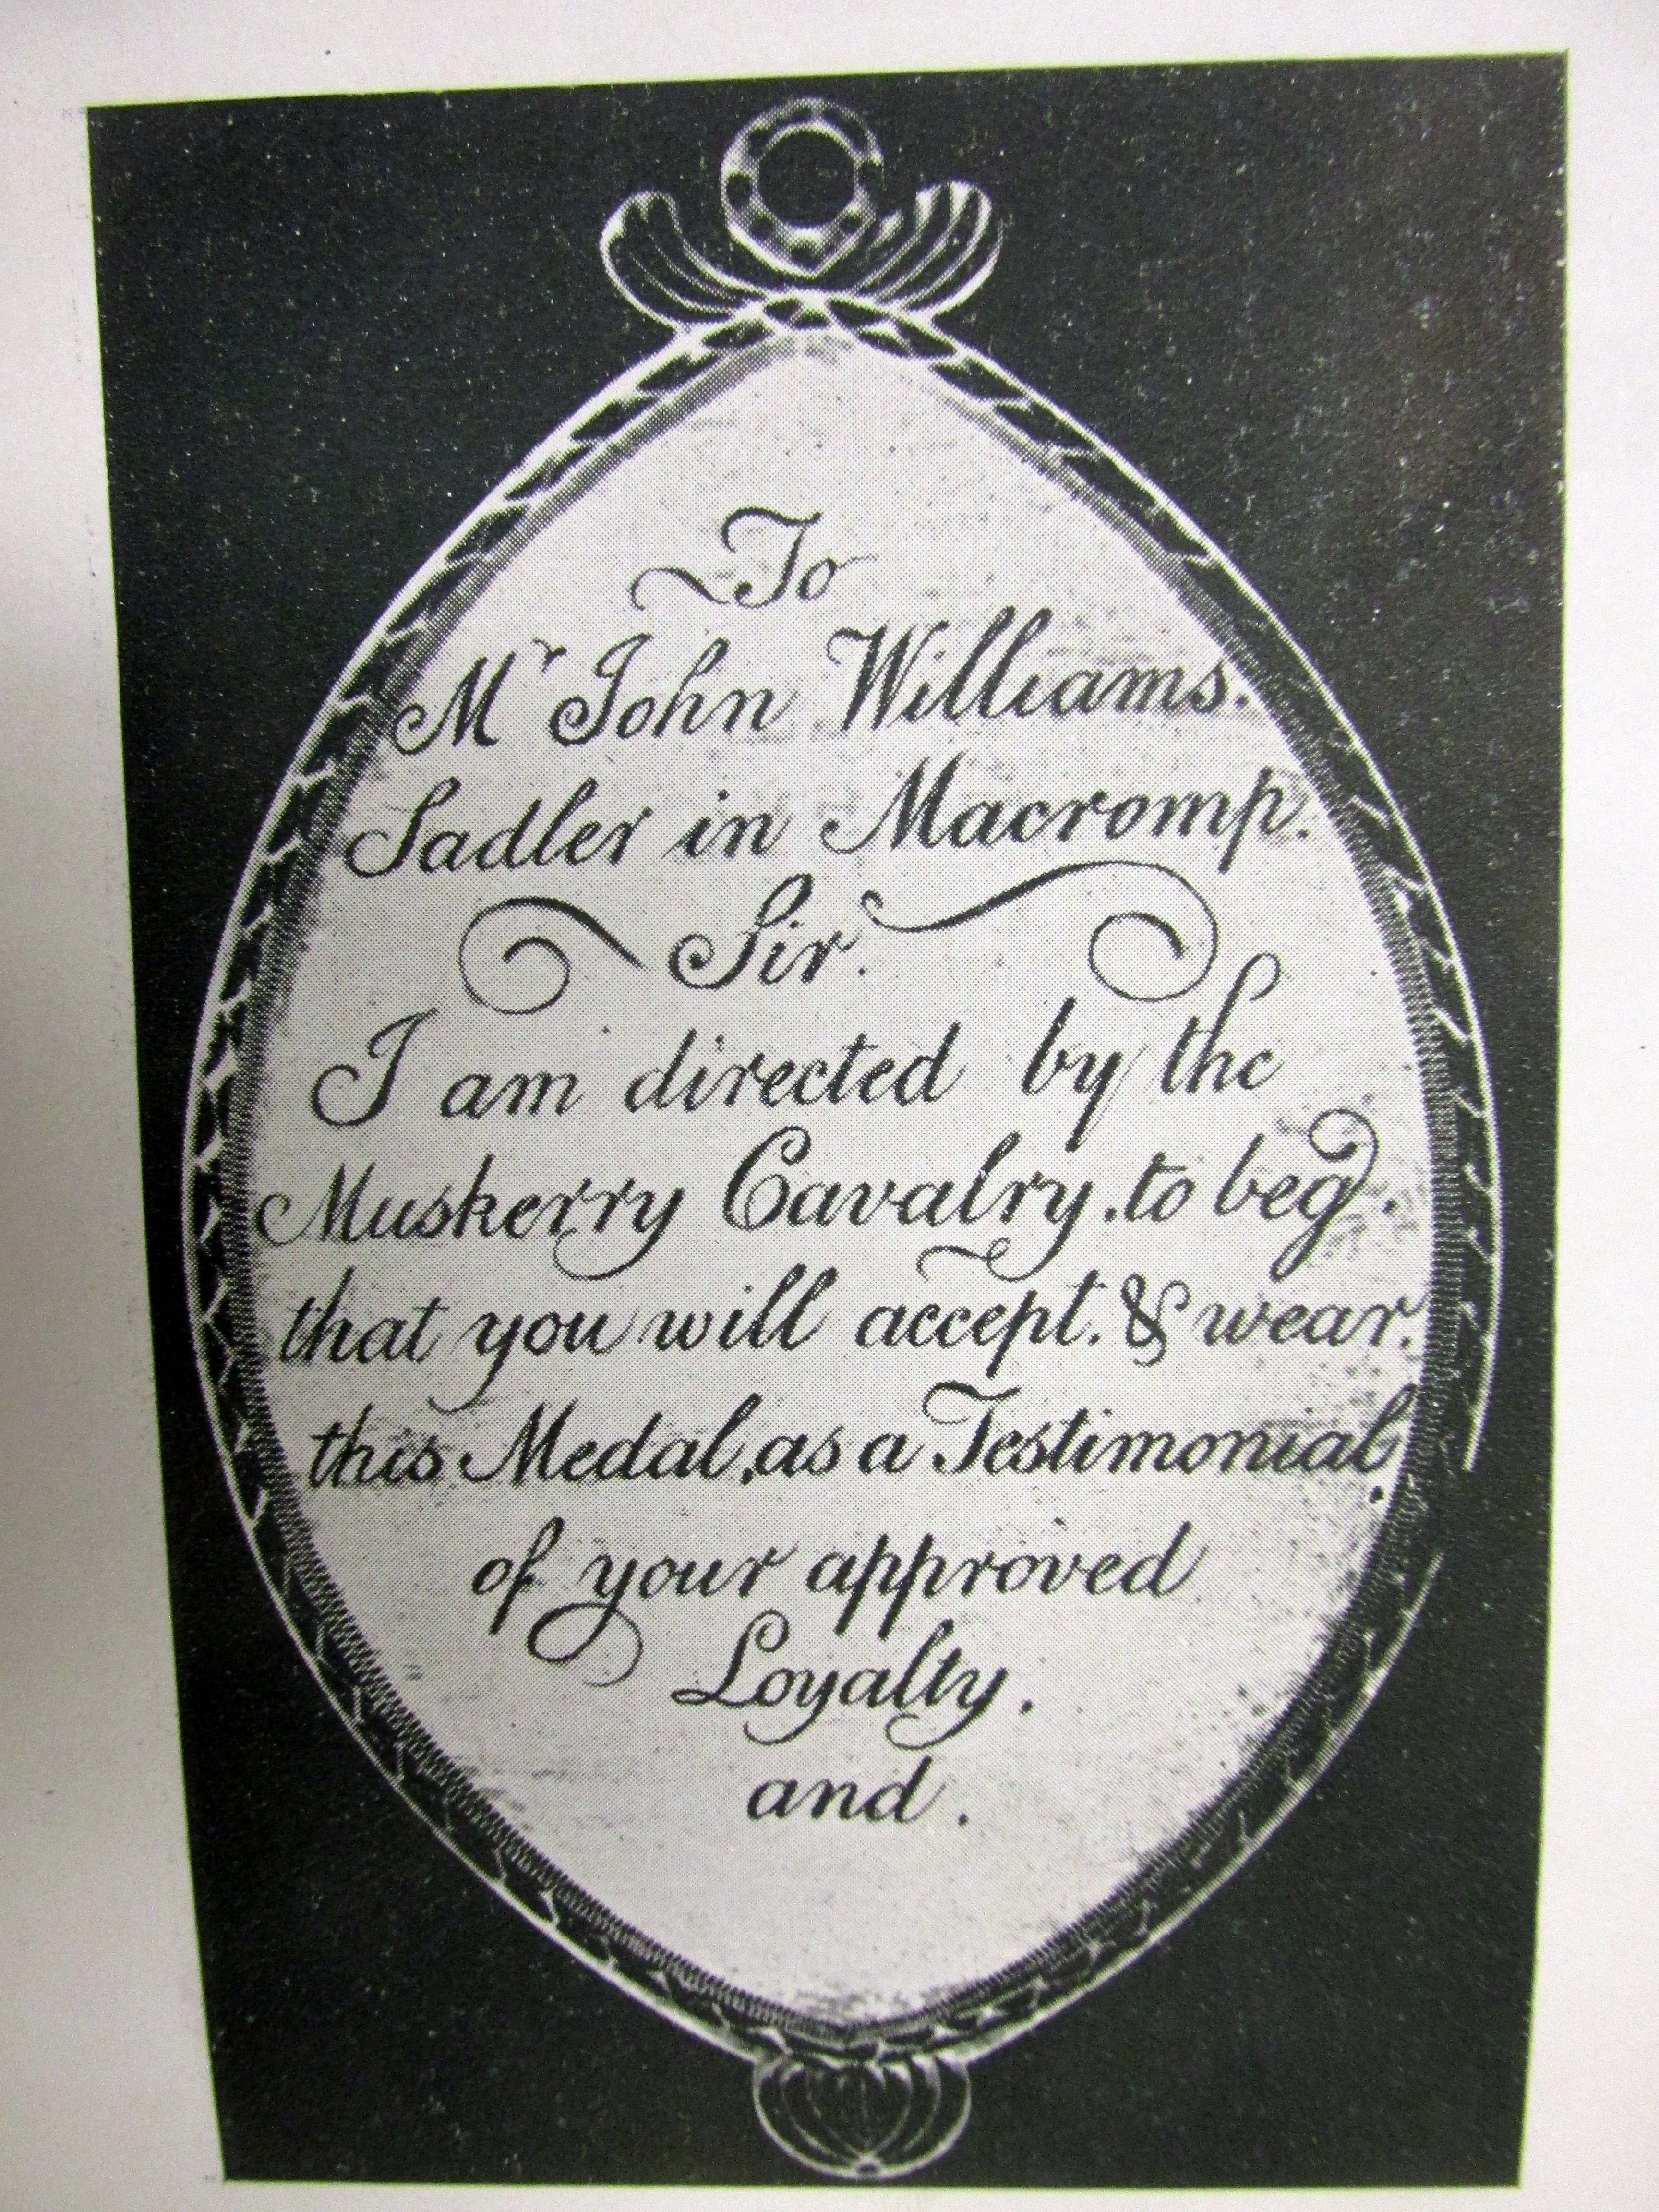 To
Mr John Williams.
Sadler in Macromp.
Sir.
I am directed by the
Muskerry Cavalry, to beg.
that you will accept. & wear.
this Medal, as a Testimonial.
of your approved
Loyalty.
and.